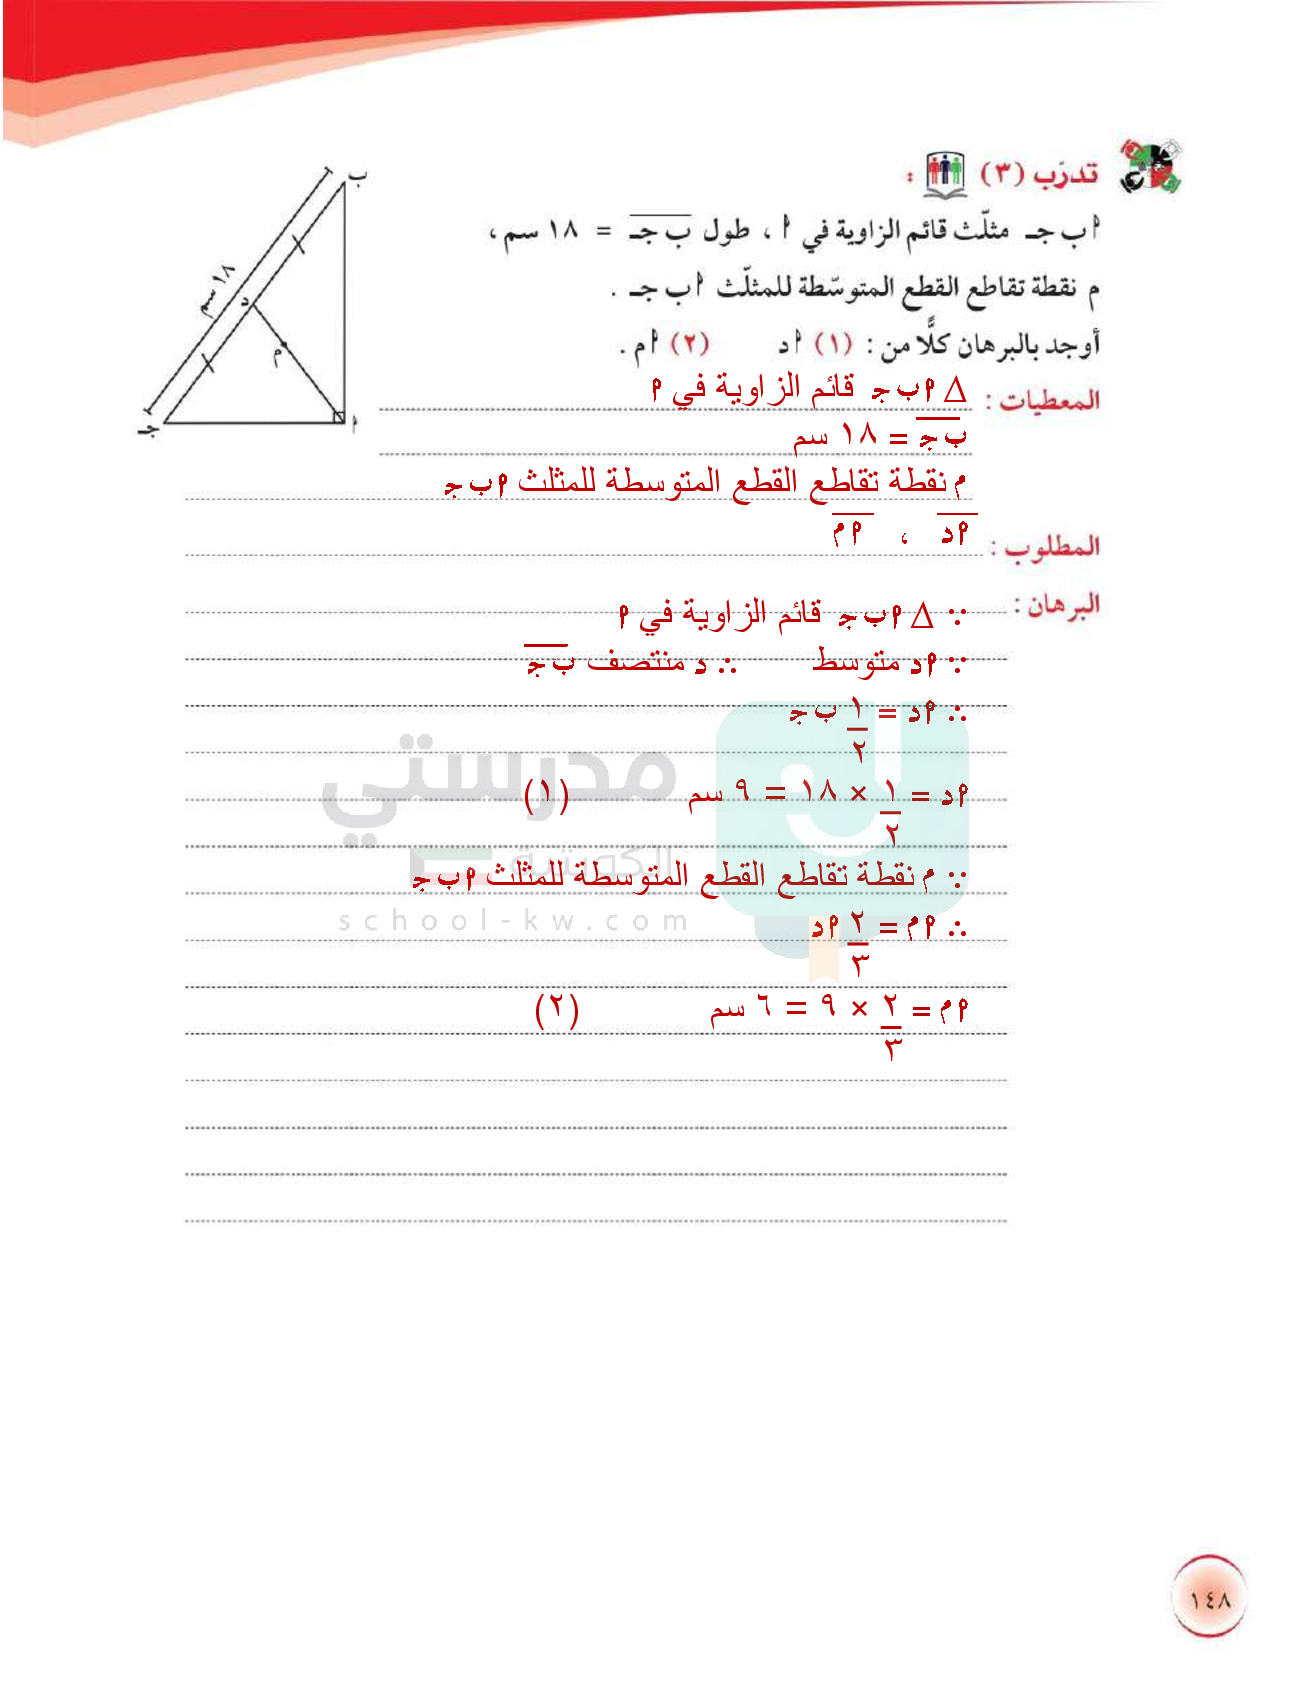 تدرّب (٣) :
أ ب جـ مثلّث قائم الزاوية في أ ، طول ب جـ = ١٨ سم ،
م نقطة تقاطع القطع المتوسّطة للمثلّث أ ب جـ .
أوجد بالبرهان كلًّا من : (١) أ د (٢) أ م .
ب
١٨ سم
د
م
جـ
أ
المعطيات : Δ أ ب جـ قائم الزاوية في أ
ب جـ = ١٨ سم
م نقطة تقاطع القطع المتوسطة للمثلث أ ب جـ
المطلوب : أ د ، أ م
البرهان : ∵ Δ أ ب جـ قائم الزاوية في أ
∵ أ د متوسط ∴ د منتصف ب جـ
∴ أ د = ١/٢ ب جـ
أ د = ١/٢ × ١٨ = ٩ سم (١)
∵ م نقطة تقاطع القطع المتوسطة للمثلث أ ب جـ
∴ أ م = ٢/٣ أ د
أ م = ٢/٣ × ٩ = ٦ سم (٢)
مدرستي
الكويتية
school-kw.com
١٤٨